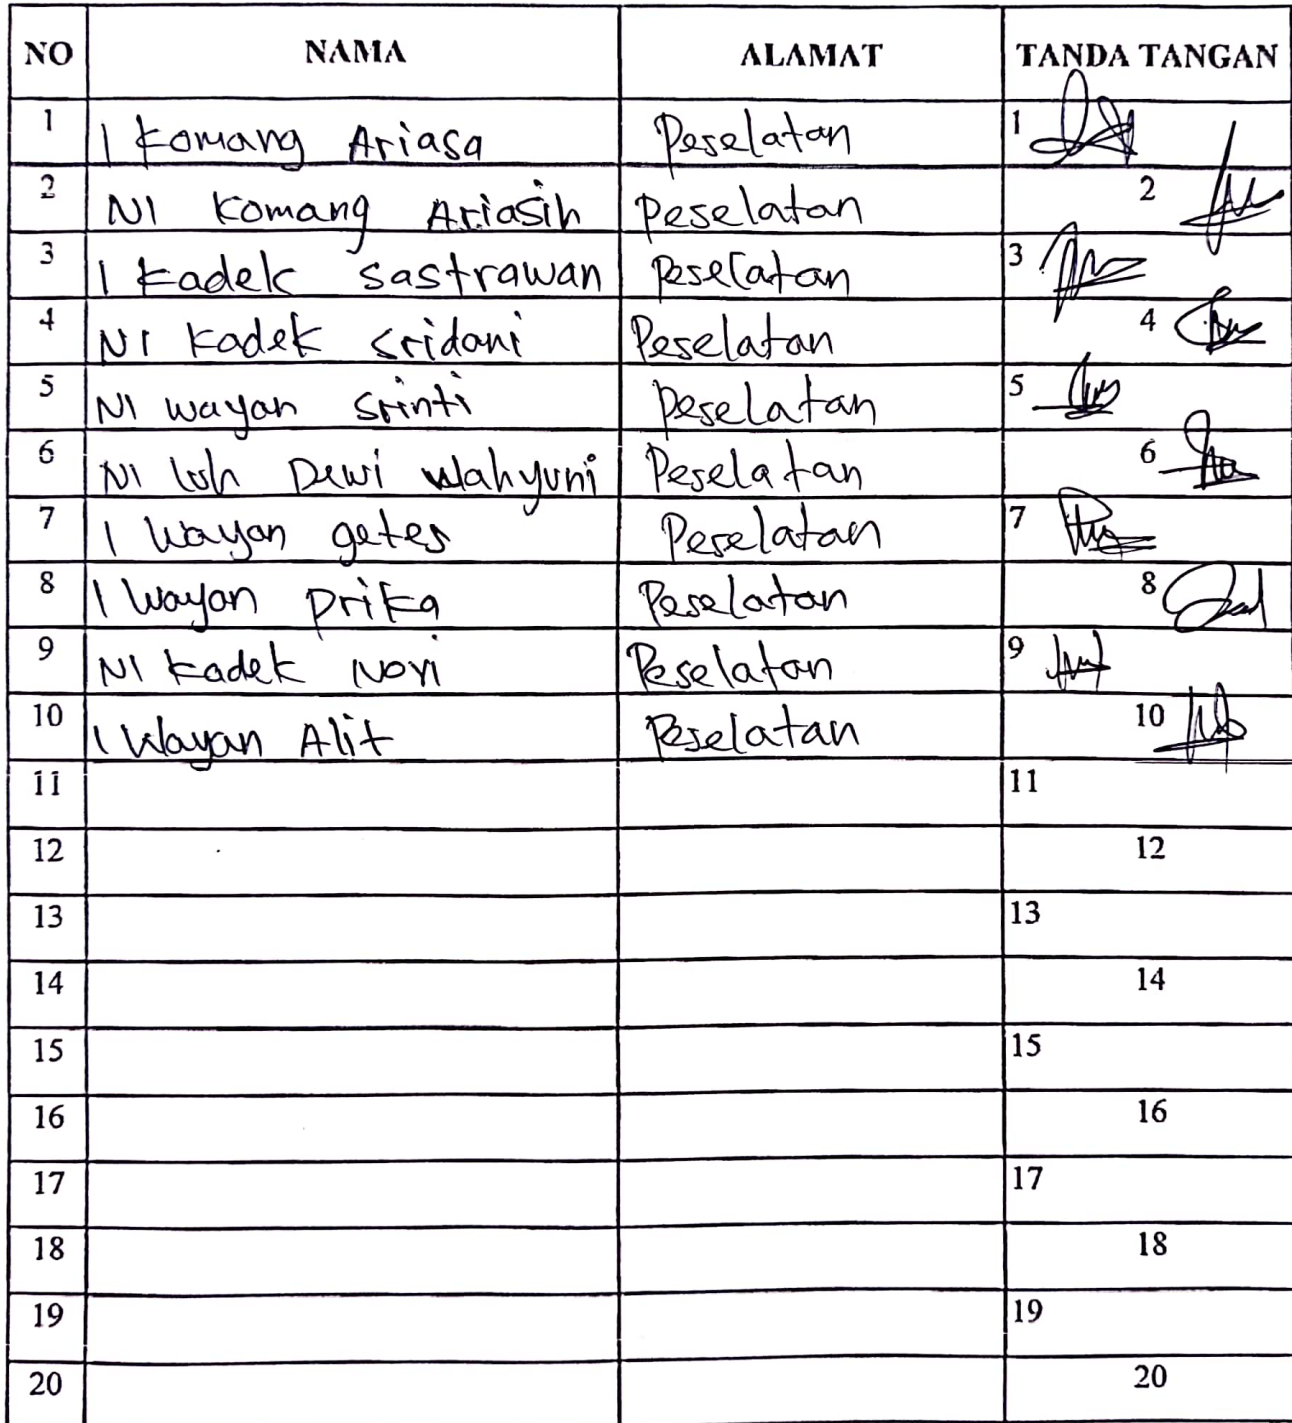 NO NAMA ALAMAT TANDA TANGAN
1 I Komang Ariasa Peselatan 1
2 NI Komang Ariasih Peselatan 2
3 I Kadek Sastrawan Peselatan 3
4 NI Kadek Sridani Peselatan 4
5 NI Wayan Srinti Peselatan 5
6 NI Luh Dewi Wahyuni Peselatan 6
7 I Wayan getes Peselatan 7
8 I Wayan Prika Peselatan 8
9 NI Kadek Novi Peselatan 9
10 I Wayan Alit Peselatan 10
11 11
12 12
13 13
14 14
15 15
16 16
17 17
18 18
19 19
20 20